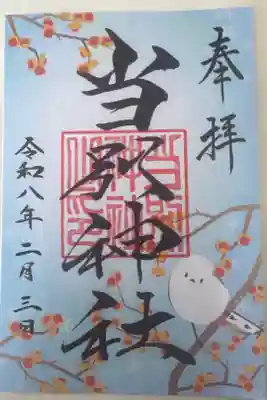 奉拝
当別神社
令和八年二月三日